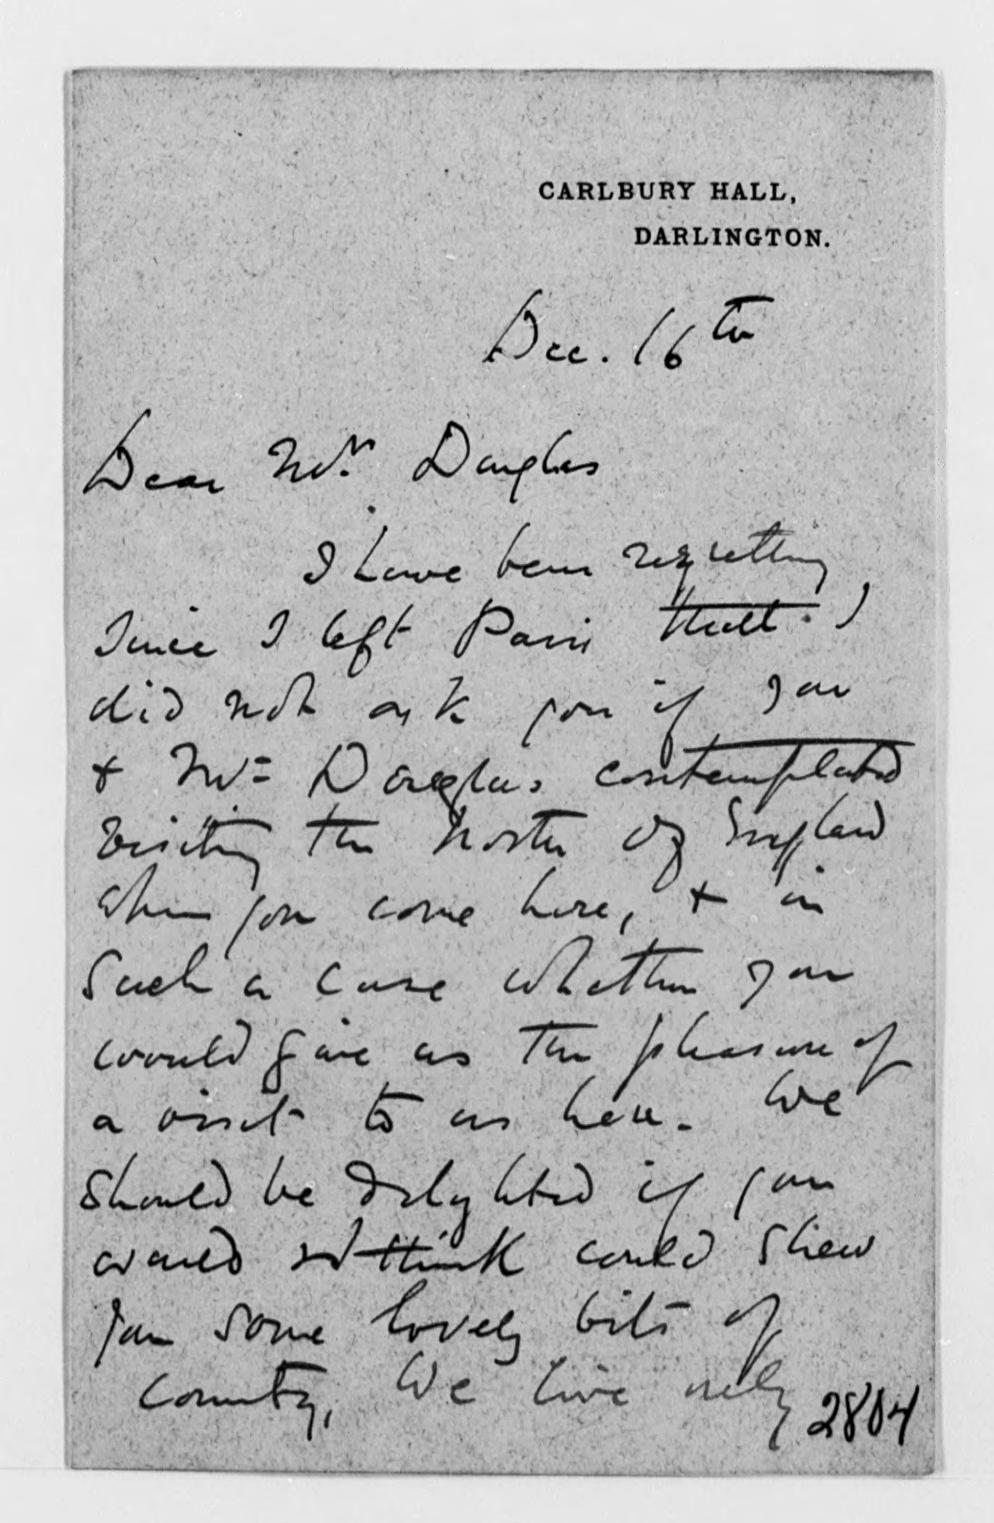 CARLBURY HALL,
DARLINGTON.
Dec. 16th
Dear Mr. Douglas
I have been regretting
since I left Paris that I
did not ask you if you
& Mrs Douglas contemplated
visiting the North of England
when you come here, & in
such a case whether you
would give us the pleasure of
a visit to us here. We
should be delighted if you
would & think could shew
you some lovely bits of
country, We live only
2804